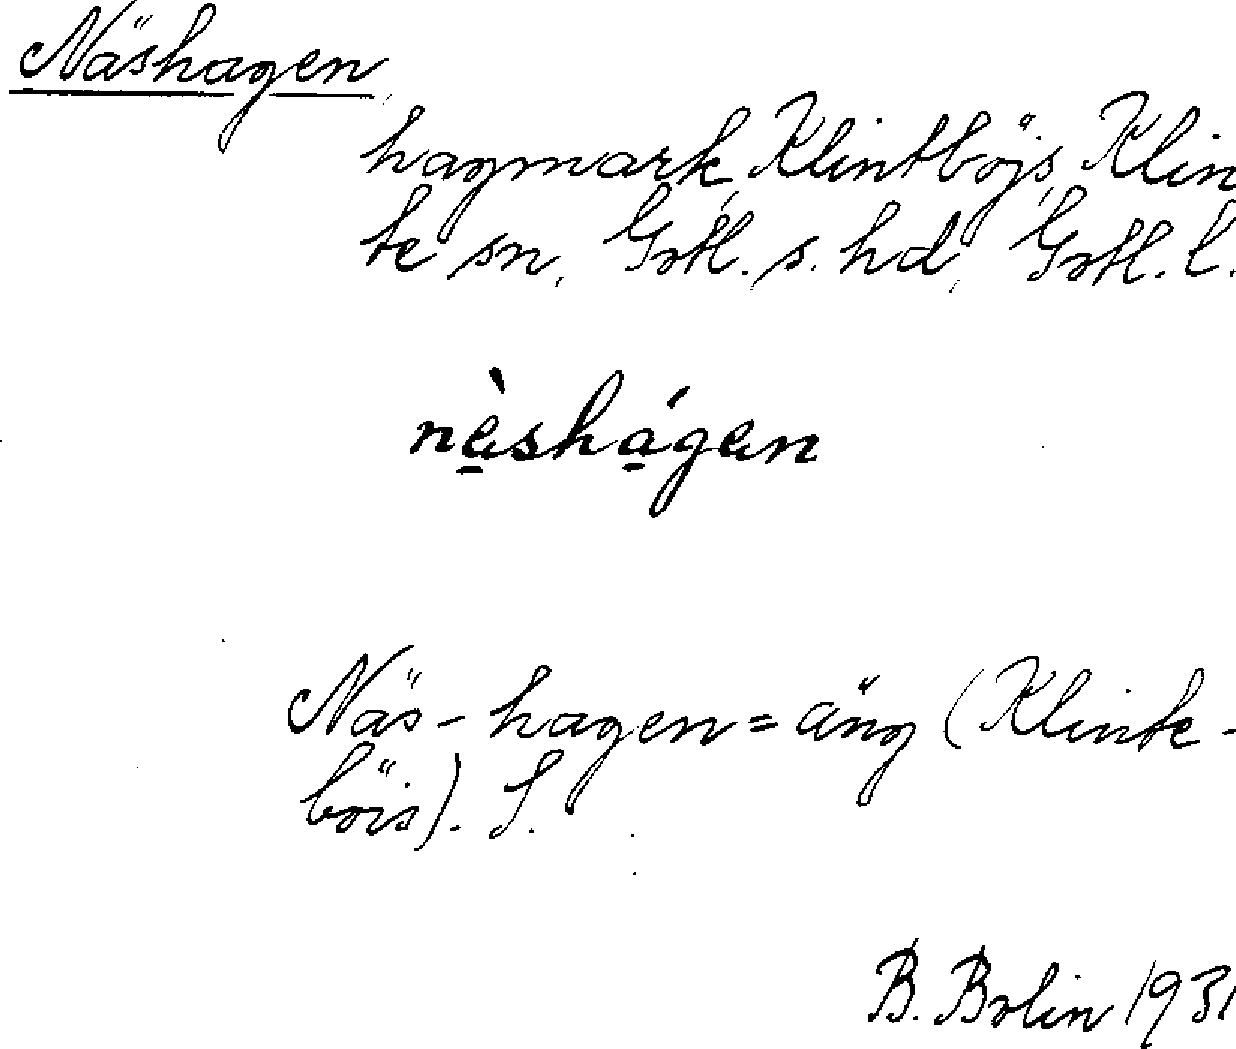 Näshagen,
hagmark, Klintböjs, Klin
te sn, Gotl. s. hd, Gotl. l.
nèshágen
Näs-hagen=äng (Klinte-
böis). S.
B. Bolin 1931